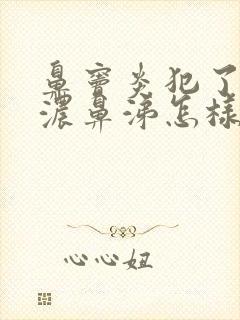 鼻窦炎犯了
浓鼻涕怎样
心心妞